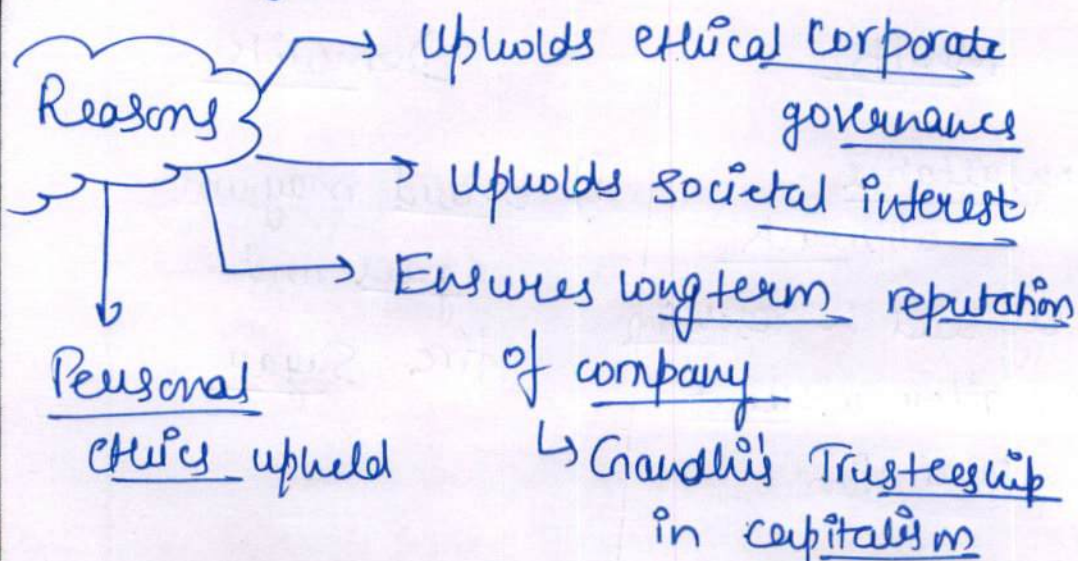 Reasons
Upholds ethical corporate
governance
Upholds societal interest
Ensures long term reputation
of company
↳ Gandhi's Trusteeship
in capitalism
Personal
ethics upheld